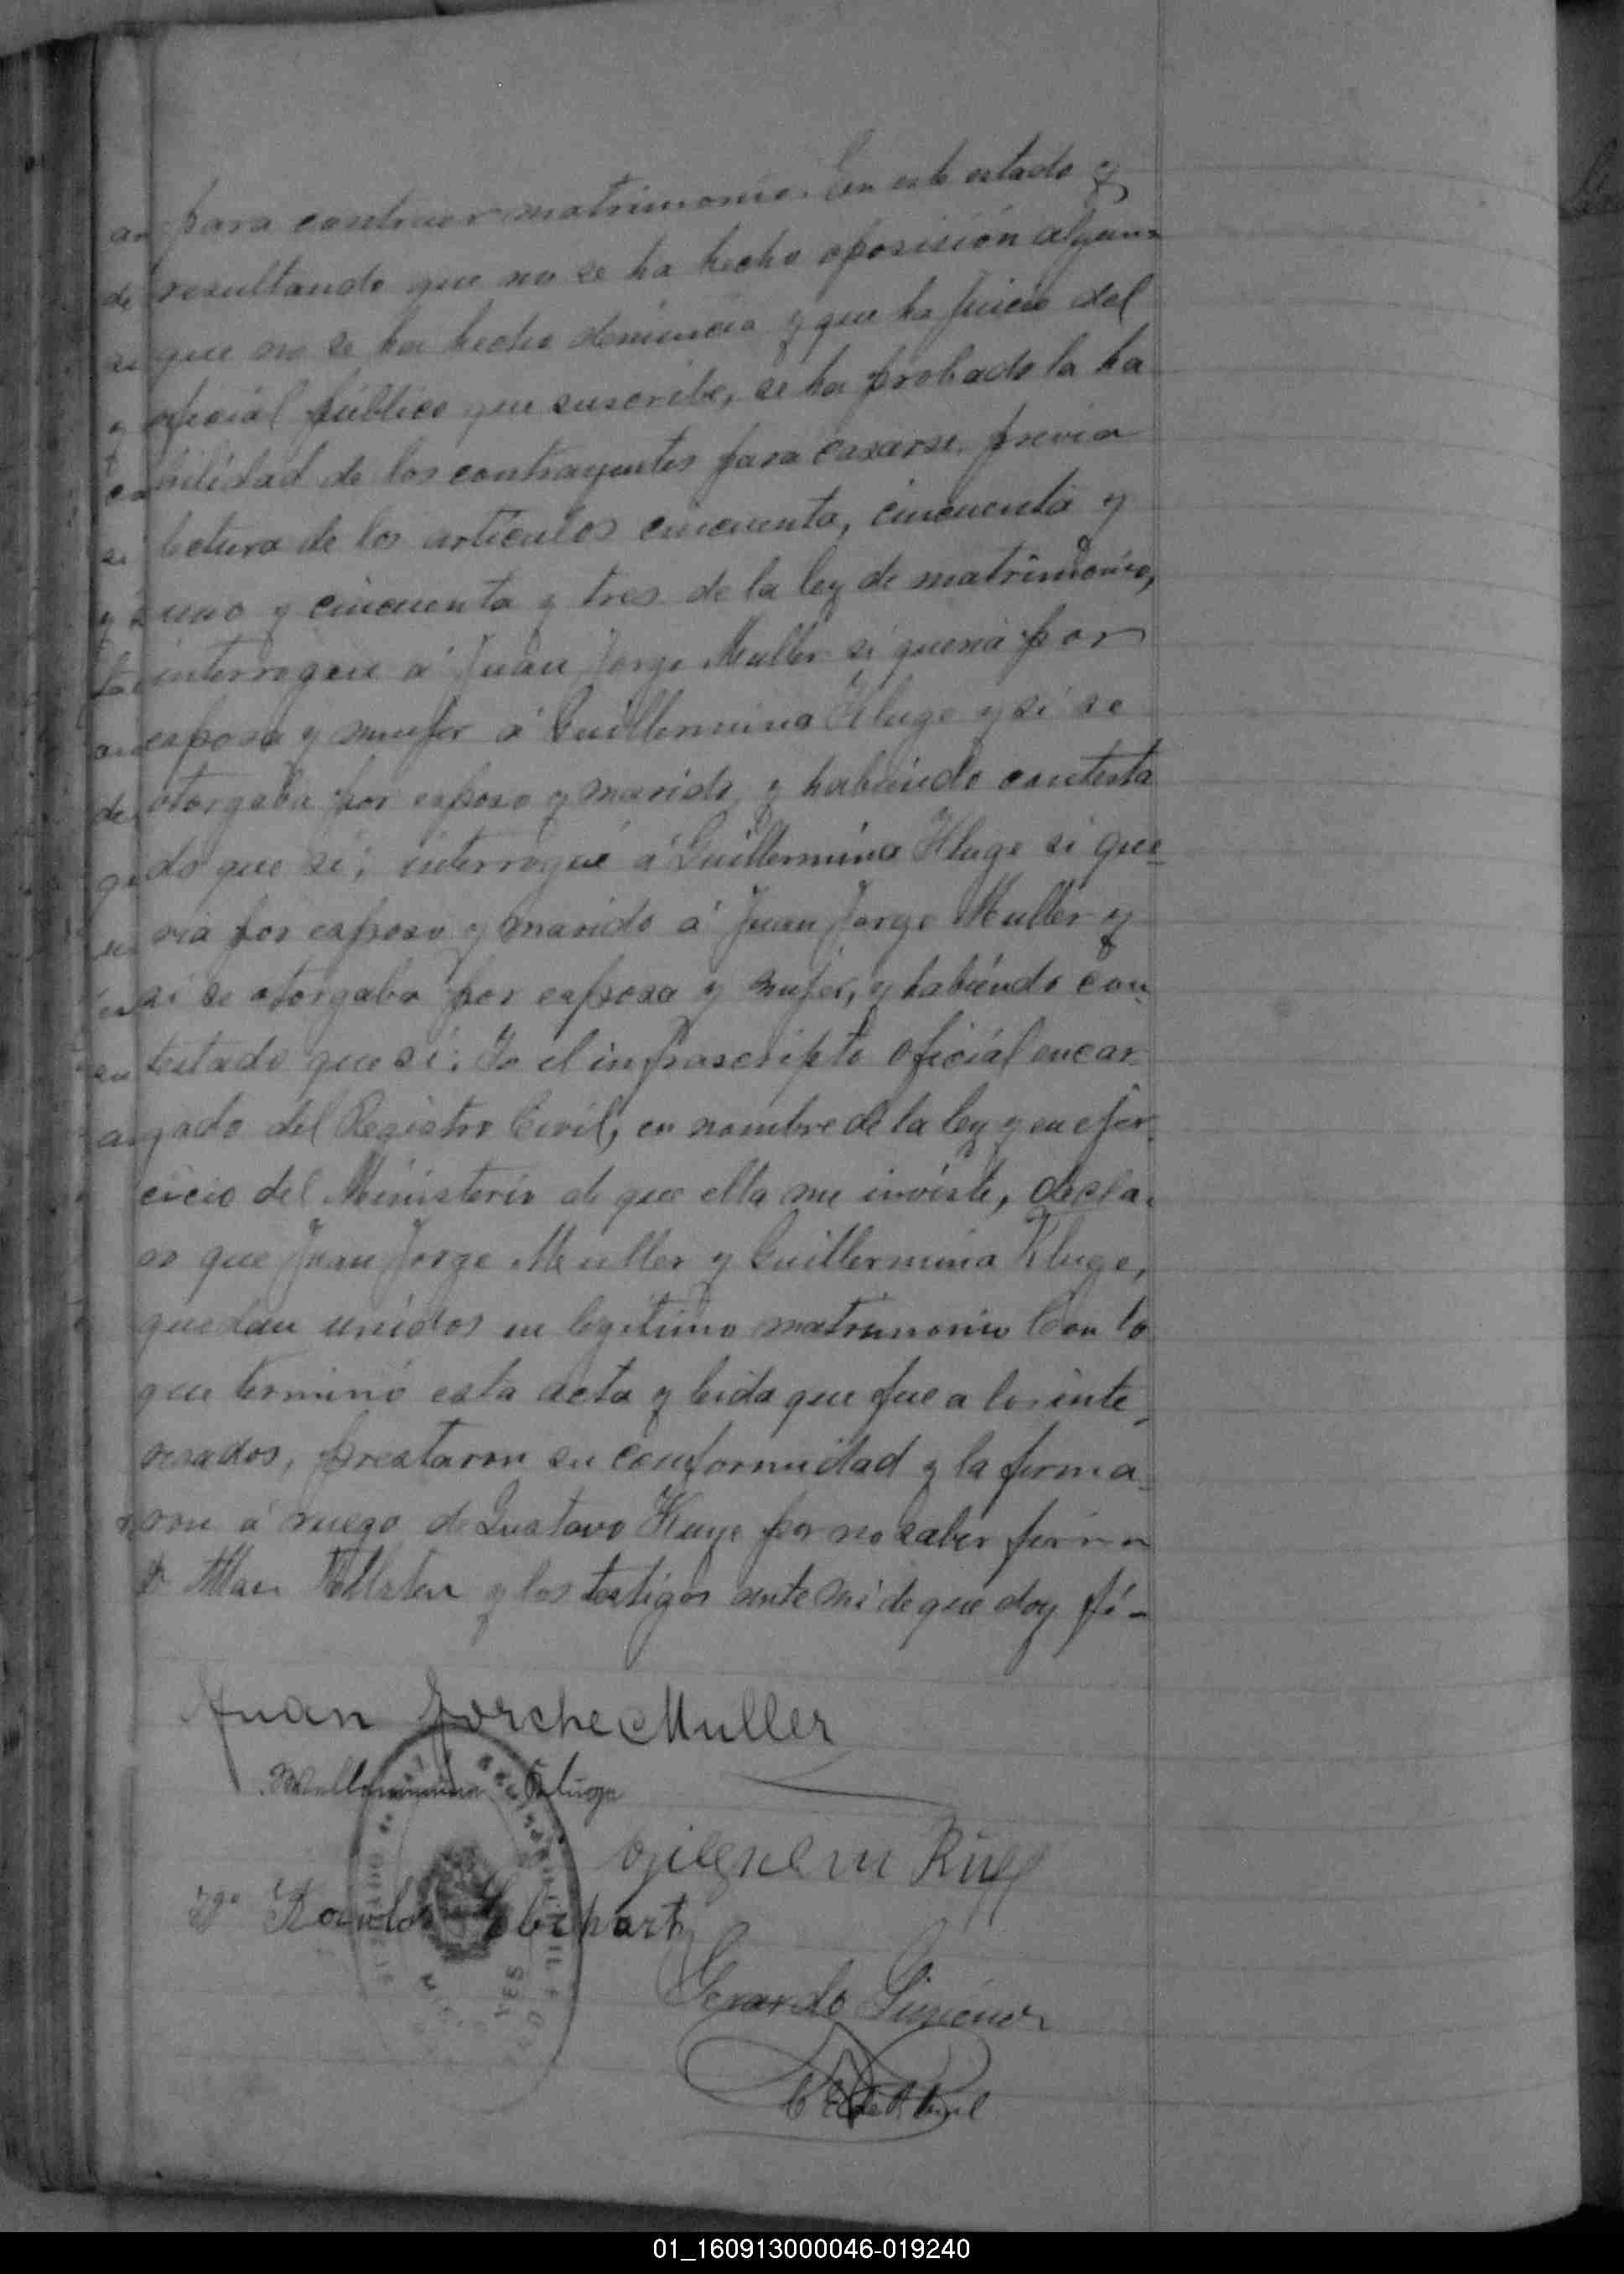 para contraer matrimonio. En este estado y
resultando que no se ha hecho oposición alguna
que no se ha hecho denuncia y que ha juicio del
oficial público que suscribe, se ha probado la ha
bilidad de los contrayentes para casarse. previa
lectura de los artículos cincuenta, cincuenta y
uno y cincuenta y tres de la ley de matrimonio,
interrogué á Juan Jorge Muller si quería por
esposa y mujer á Guillermina Kluge y si se
otorgaba por esposo y marido, y habiendo contesta
do que si; interrogué á Guillermina Kluge si que=
ria por esposo y marido á Juan Jorge Muller y
si se otorgaba por esposa y mujer, y habiendo con
testado que si. Yo el infrascripto oficial encar=
gado del Registro Civil, en nombre de la ley y en ejer
cicio del Ministerio de que ella me inviste, decla.
ro que Juan Jorge Muller y Guillermina Kluge,
quedan unidos en legítimo matrimonio Con lo
que terminó esta acta y leida que fue a los inte
resados, prestaron su conformidad y la firma=
ron á ruego de Gustavo Kluge por no saber firmar
y los testigos ante mi de que doy fé-
Juan Jorche Muller
Kluge
Gerardo
01_160913000046-019240